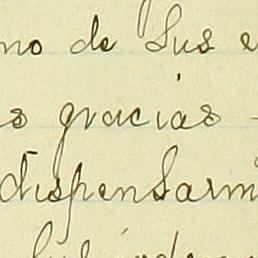 no de Sus
s gracias
dispensarm